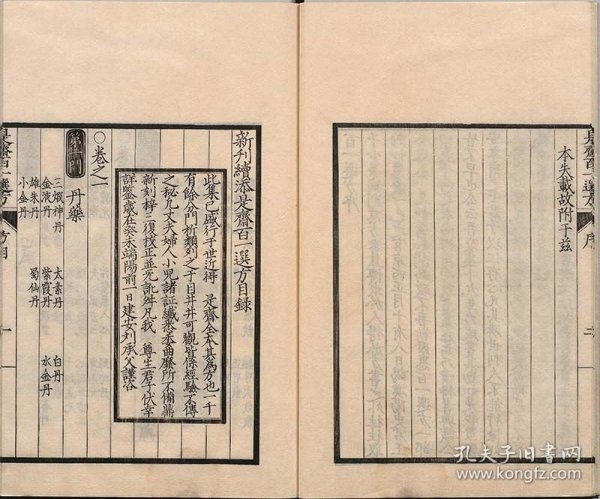 本失載故附于茲
是齋百一選方
序
二
新刊續添是齋百一選方目錄
此集已盛行于世近得 是齋全本其爲方也一千
有餘分門析類列之于目井井可觀皆係經驗不傳
之秘凡丈夫婦人小兒諸証纖悉委曲靡所不備鼎
新刻梓三復校正並無訛舛凡我 尊生君子伏幸
詳鑒歲在癸未端陽前一日建安劉承父謹咨
○卷之一
第一門 丹藥
三煅神丹 太素丹 白丹
金液丹 紫霞丹 水金丹
雄朱丹 蜀仙丹
小金丹
是齋百一選方
方目
一
孔夫子旧书网
www.kongfz.com